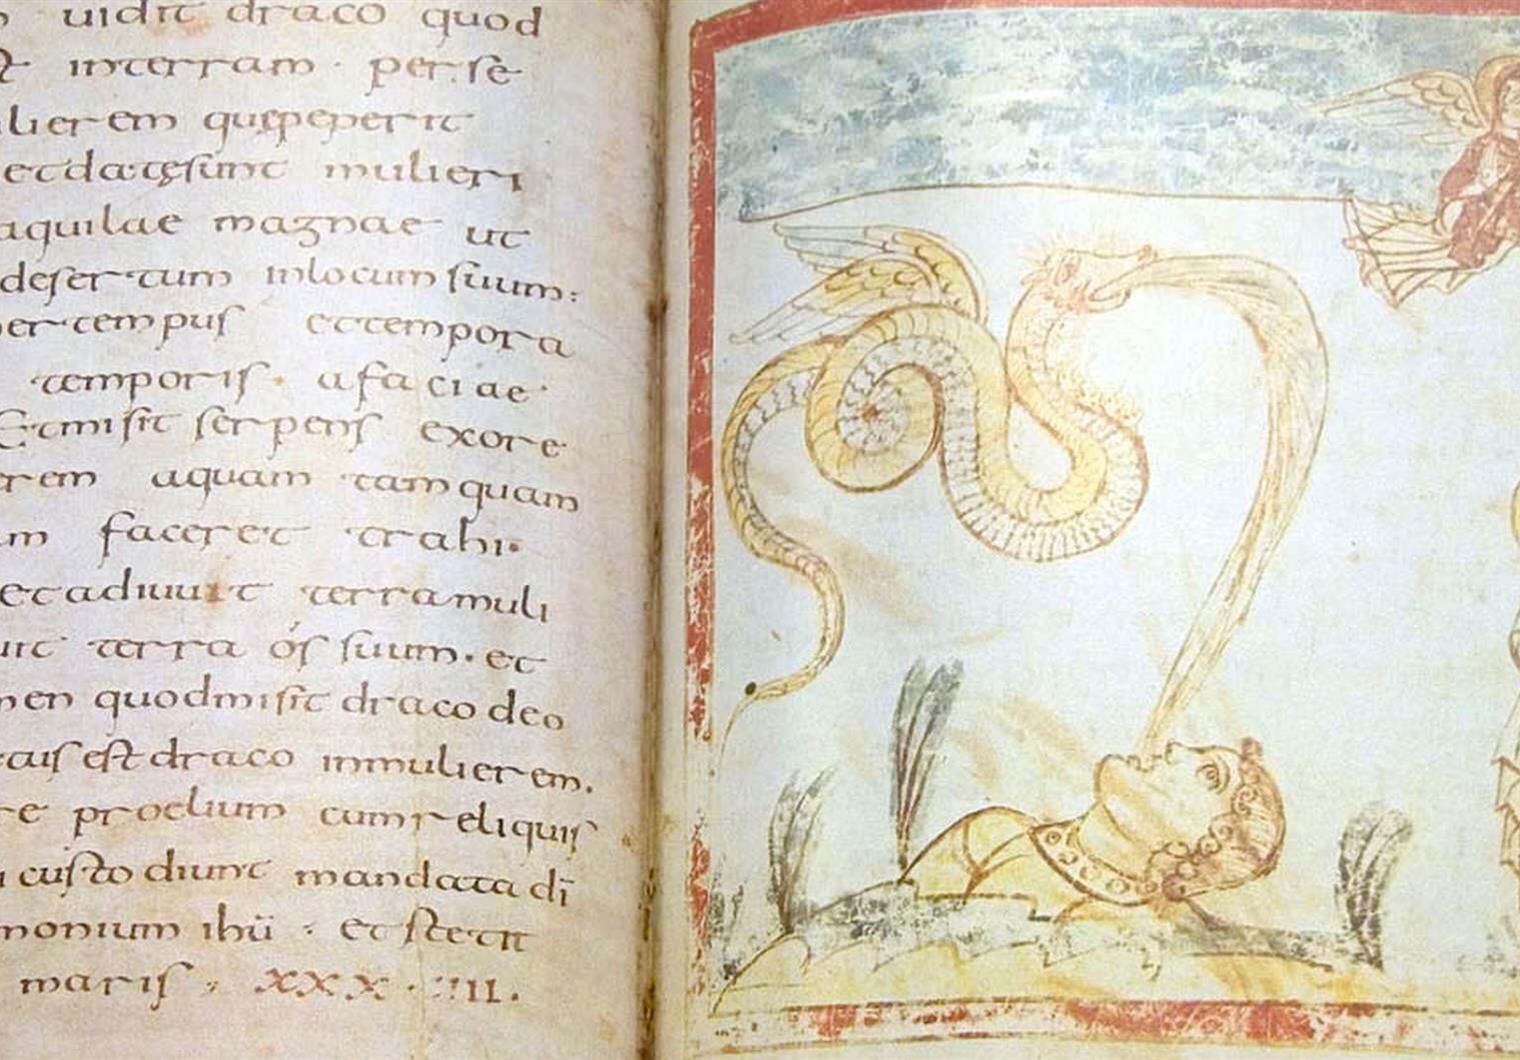 uidit draco quod
interram · perse
lierem quepeperit
etdatęsunt mulieri
aquilae magnae ut
desertum inlocum suum:
tempus ettempora
temporis · afaciae ·
Etmisit serpens exore
erem aquam tamquam
faceret trahi·
etadiuuit terra muli
uit terra ós suum · et
men quodmisit draco deo
est draco inmulierem.
re proelium cumreliquis
custodiunt mandata dī
monium ihū : et stetit
maris · xxx · IIII ·